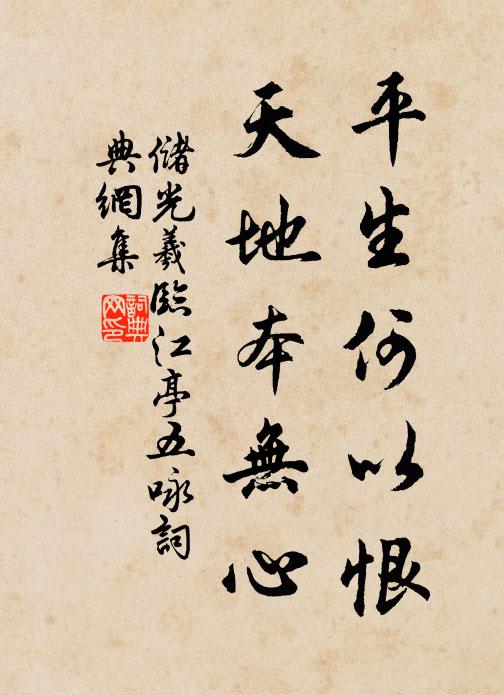 平生何以恨
天地本無心
儲光羲臨江亭五咏詞
典網集
詞典網印